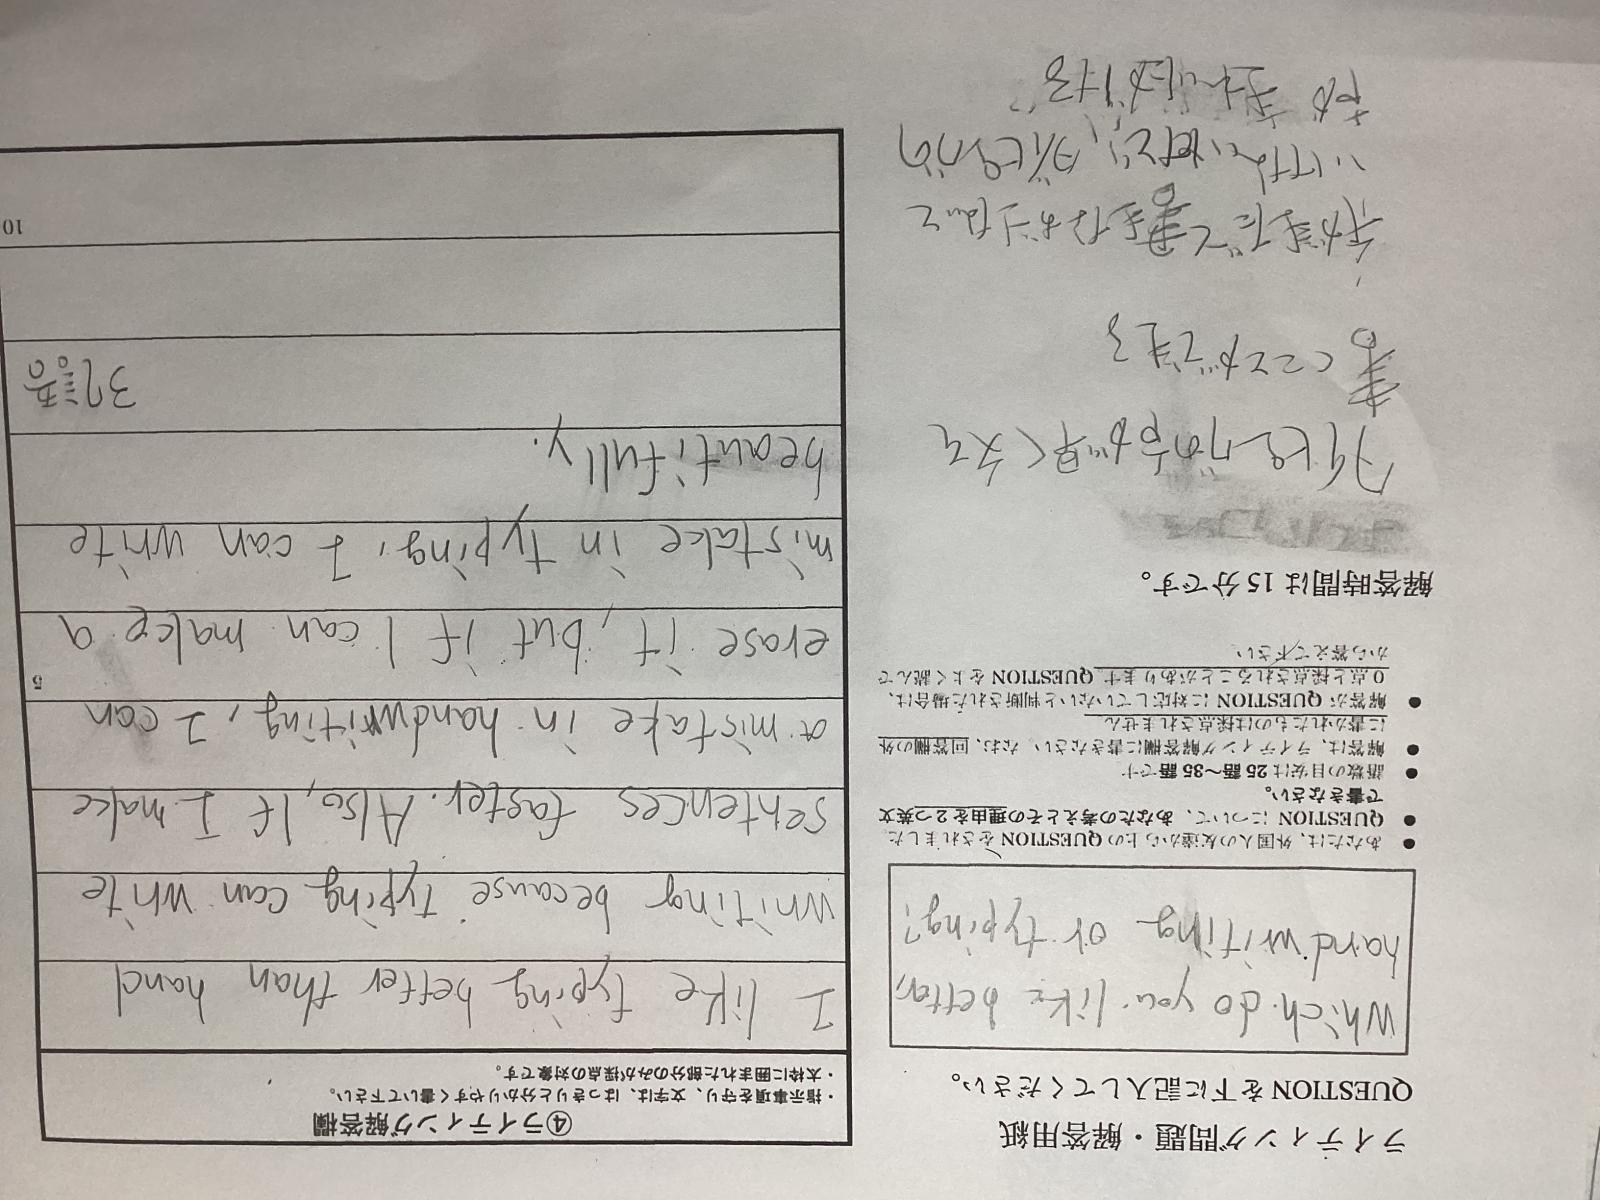 ライティング問題・解答用紙
QUESTIONを下に記入してください。
Which do you like better,
handwriting or typing?
● あなたは、外国人の友達から上のQUESTIONをされました。
● QUESTIONについて、あなたの考えとその理由を2つ英文
で書きなさい。
● 語数の目安は25語～35語です
● 解答は、ライティング解答欄に書きなさい。なお、回答欄の外
に書かれたものは採点されません
● 解答がQUESTIONに対応していないと判断された場合は、
0点と採点されることがあります。QUESTIONをよく読んで
から答えて下さい。
解答時間は15分です。
タイピングの方が早く文を
書くことができる
手がきだと書きなおしはして
いけないけど、タイピングの
方が きれいにかける
④ライティング解答欄
・指示事項を守り、文字は、はっきりと分かりやすく書いて下さい。
・太枠に囲まれた部分のみが採点の対象です。
I like typing better than hand
writing because typing can write
sentences faster. Also, If I make
a mistake in handwriting, I can
erase it, but if I can make a
5
mistake in typing, I can write
beautifully.
37語
10